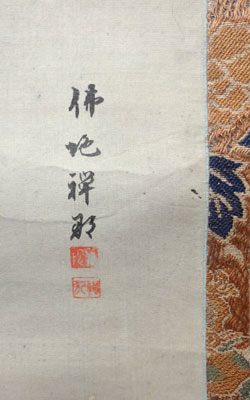 佛地禅那